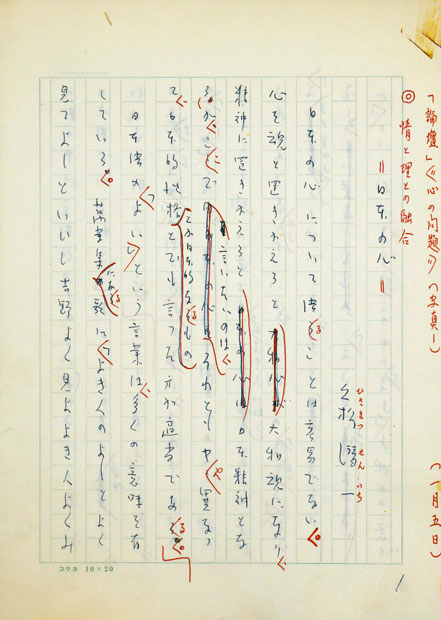 「論壇」《心の問題》(写真1)
(一月五日)
◎ 情と理との融合
＝日本の心＝
久松潜一
ひさまつ せん いち
日本の心について語ることは容易でない。
心を魂と置きかえると大和魂になり
精神に置きかえると日本精神とな
るがここで言いたいのは それとやゝ異なっ
とか日本的なるもの
て日本的性格とでも言った方が適当である。
日本語のよいという言葉は多くの意味を有
している。萬葉集にある歌によき人のよしとよく
見てよしといいし吉野よく見よよき人よくみ
1
コクヨ 10×20